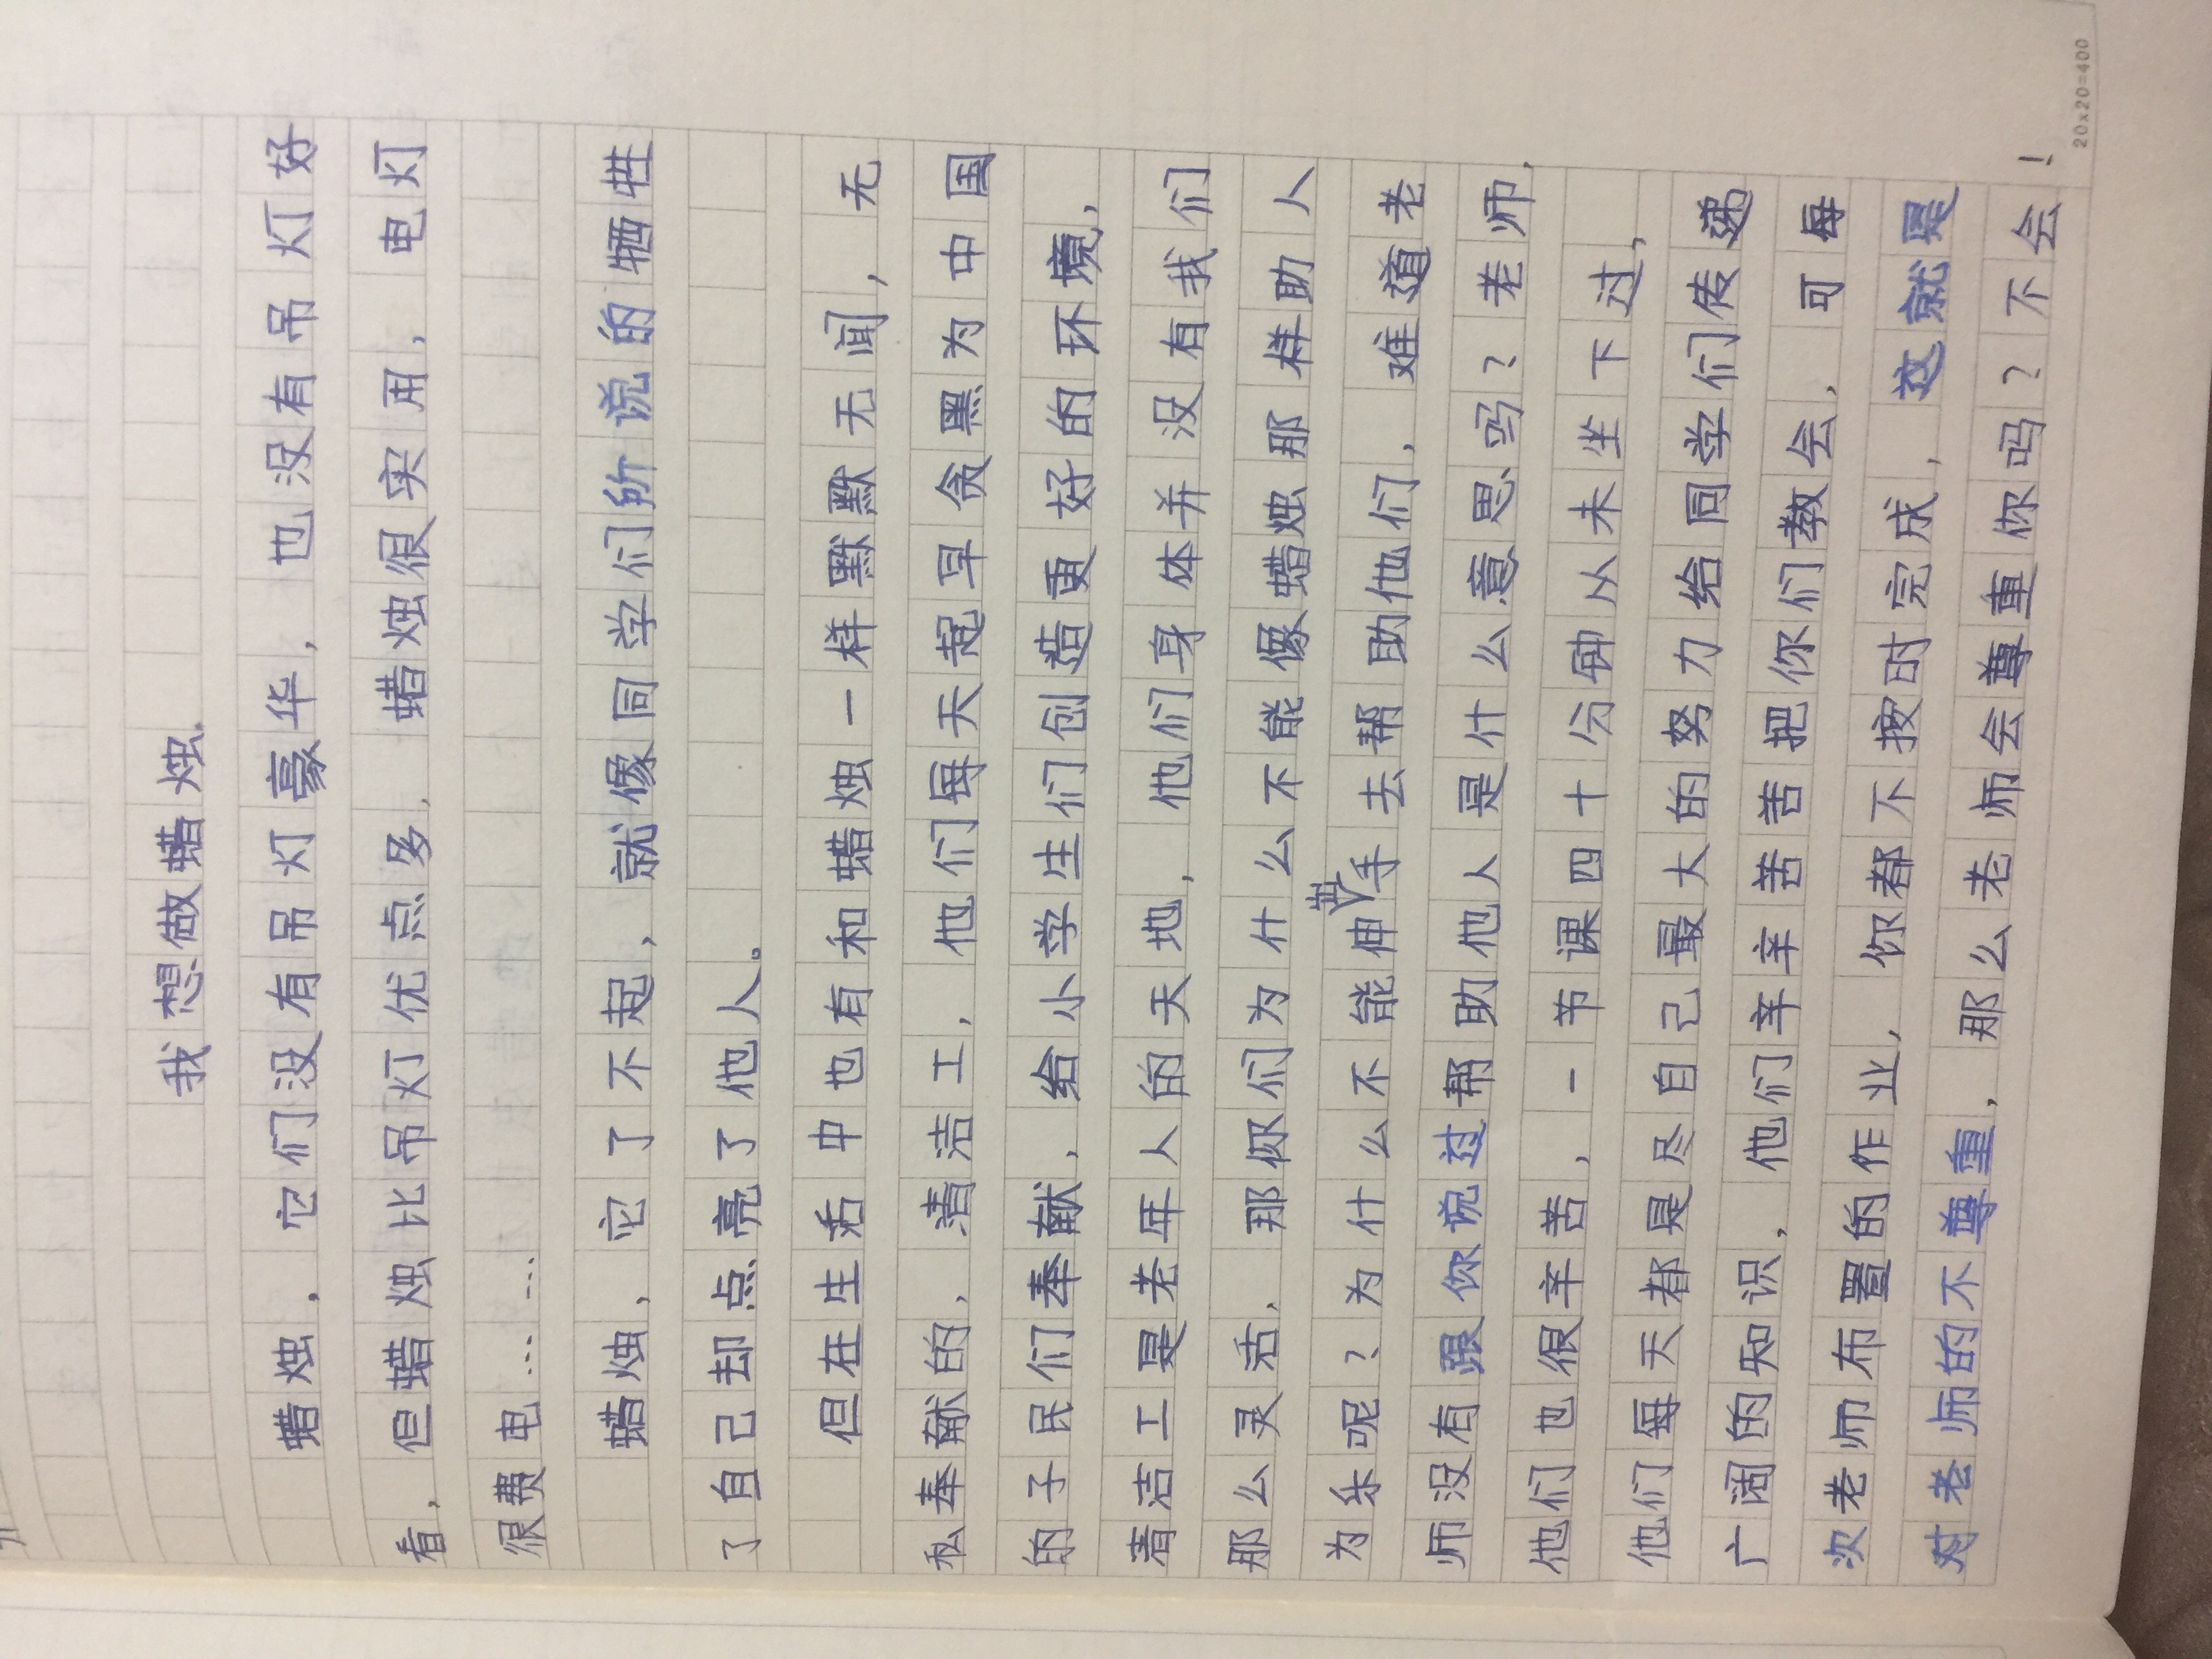 我想做蜡烛.
蜡烛，它们没有吊灯豪华，也没有吊灯好
看，但蜡烛比吊灯优点多.蜡烛很实用，电灯
很费电……
蜡烛，它了不起，就像同学们所说的牺牲
了自己却点亮了他人。
但在生活中也有和蜡烛一样默默无闻，无
私奉献的，清洁工，他们每天起早贪黑为中国
的子民们奉献，给小学生们创造更好的环境，
清洁工是老年人的天地，他们身体并没有我们
那么灵活，那你们为什么不能像蜡烛那样助人
为乐呢？为什么不能伸出手去帮助他们，难道老
师没有跟你说过帮助他人是什么意思吗？老师，
他们也很辛苦，一节课四十分钟从未坐下过，
他们每天都是尽自己最大的努力给同学们传递
广阔的知识，他们辛辛苦苦把你们教会，可每
次老师布置的作业，你都不按时完成，这就是
对老师的不尊重，那么老师会尊重你吗？不会！
20x20=400